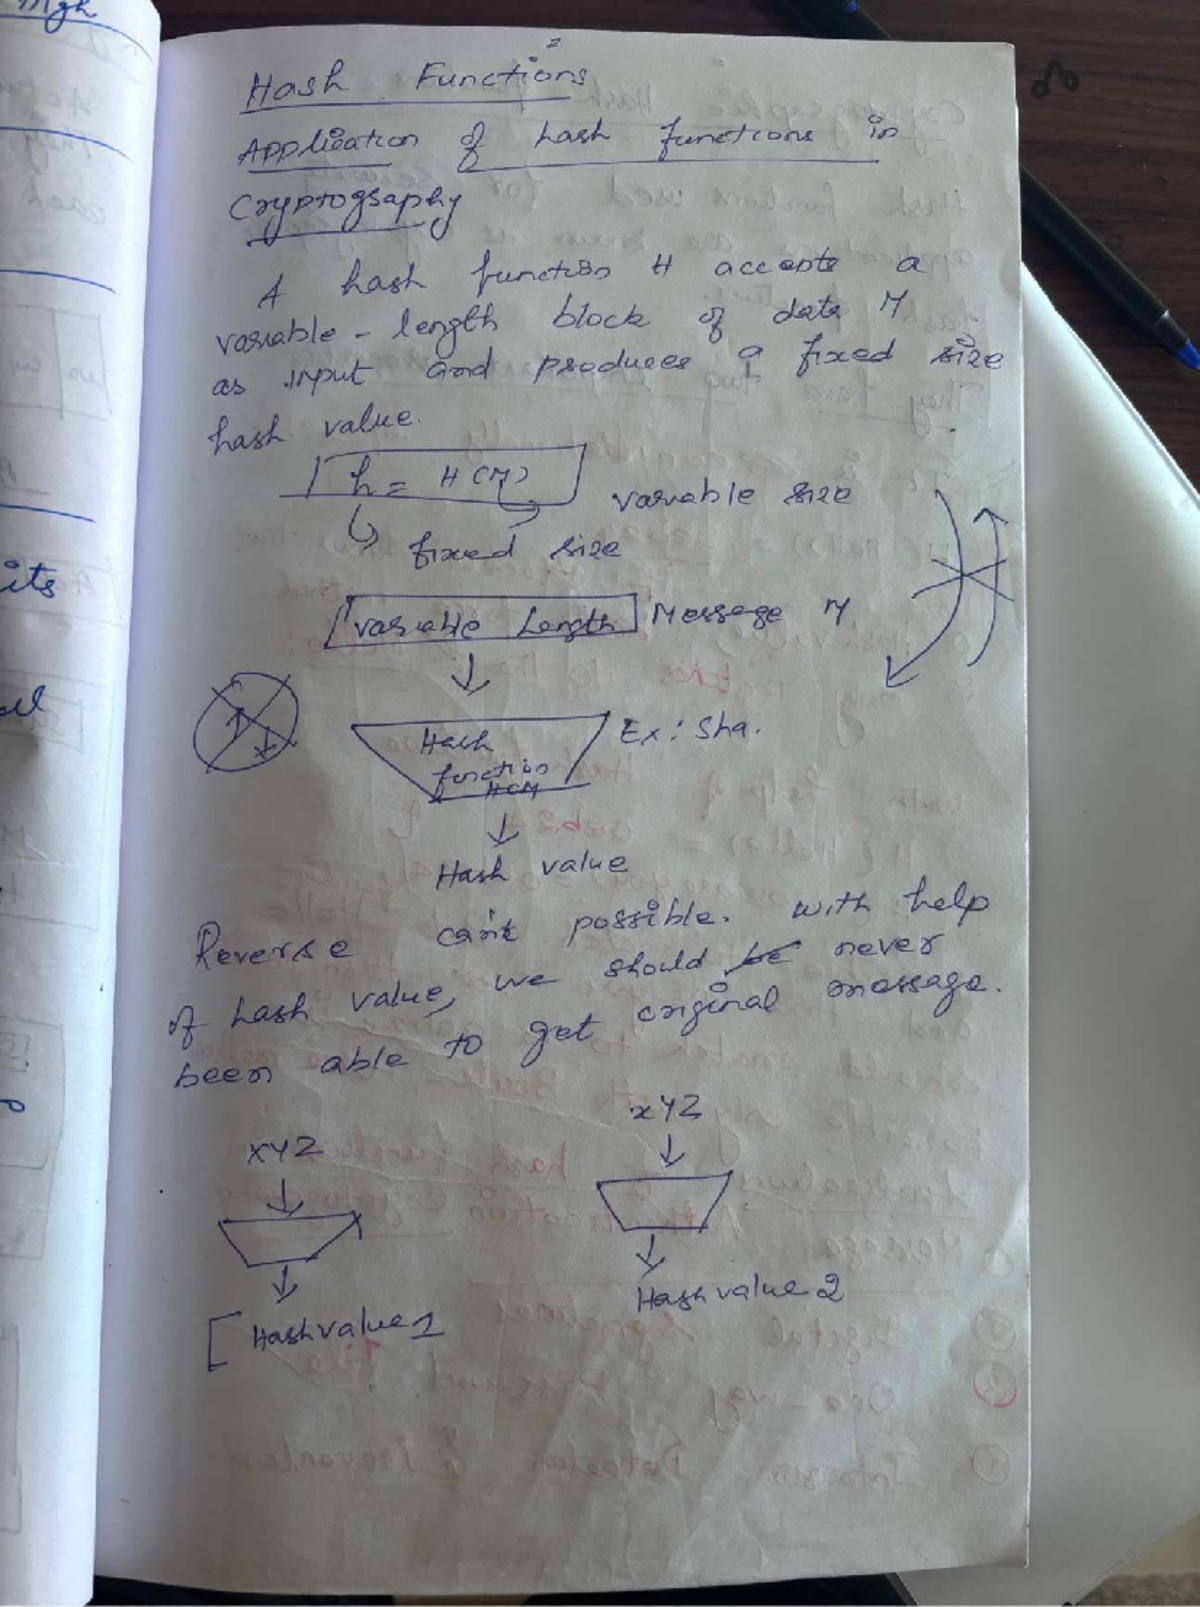 Hash Functions
Application of hash functions in
Cryptography
A hash function H accepts a
variable - length block of data M
as input and produces a fixed size
hash value.
h = H(M)
variable size
fixed size
variable Length Message M
Hash
function
H(M
Ex: Sha.
Hash value
Reverse can't possible. with help
of hash value, we should be never
been able to get original message.
XYZ
xYZ
Hash value 1
Hash value 2
its